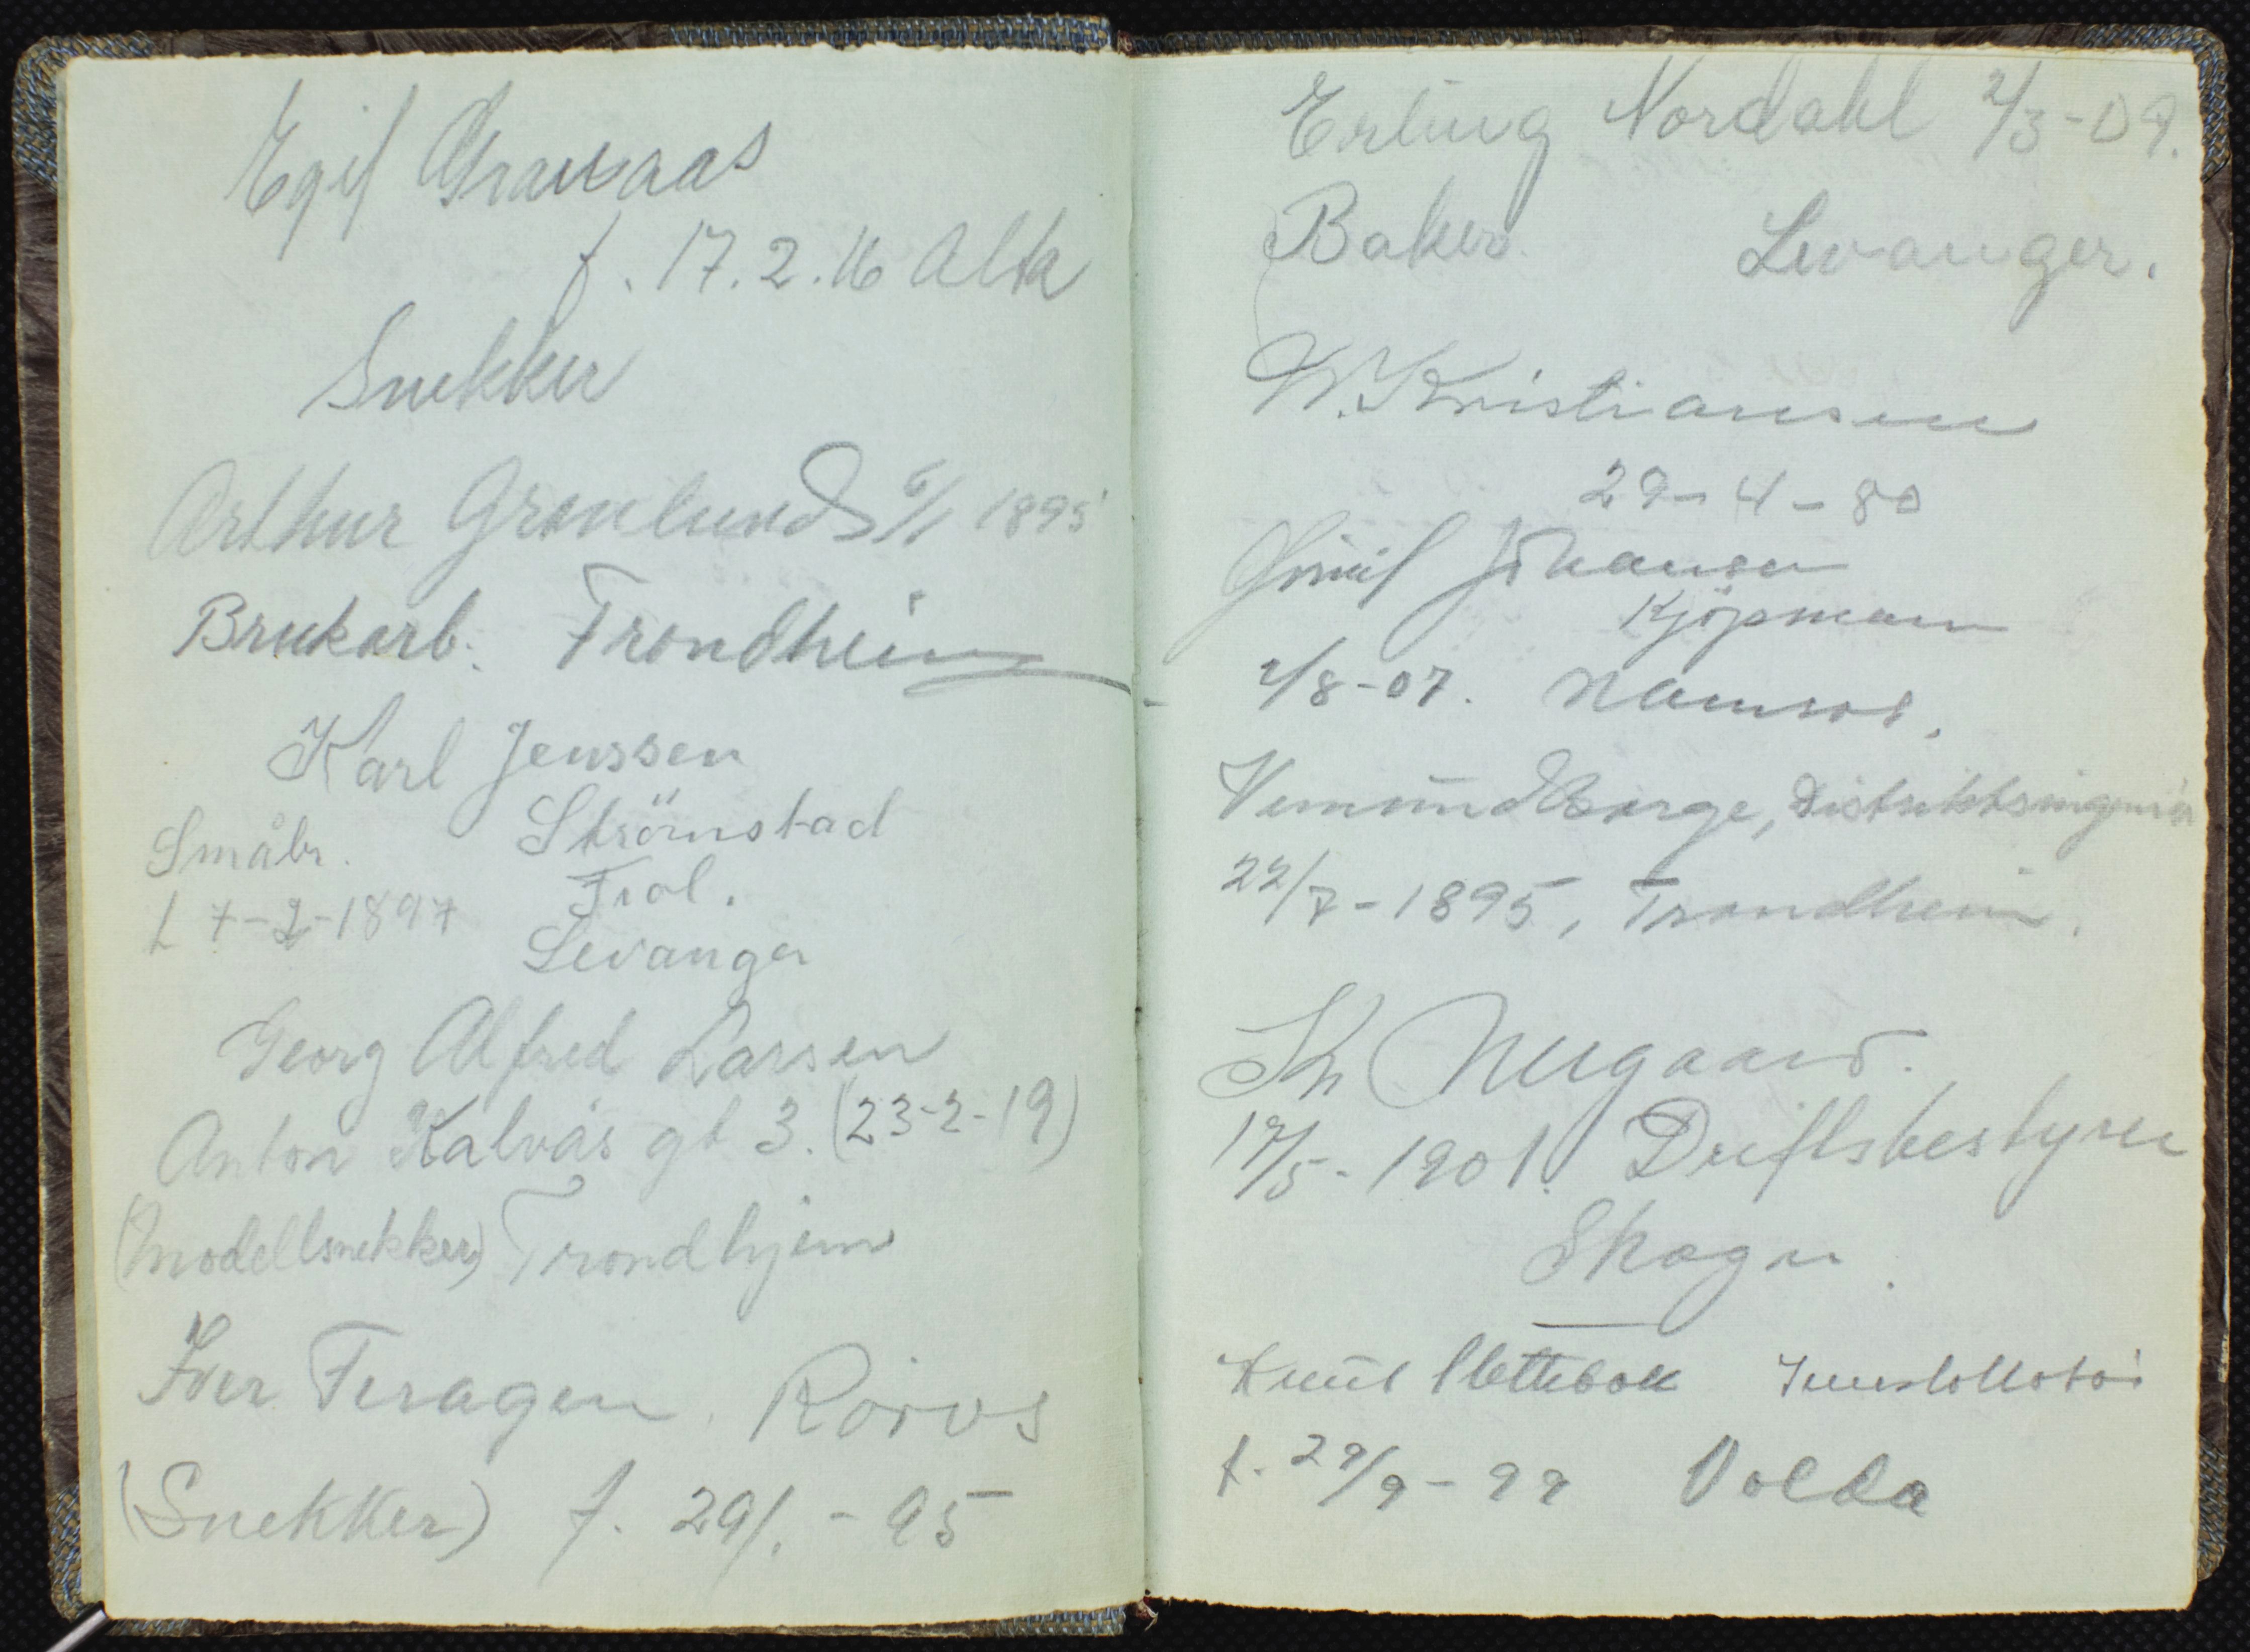 Egil Granaas
f. 17.2.16 Alta
Snekker
Arthur Grønlund 6/1 1895
Brukarb. Trondheim
Karl Jenssen
Småbr. Strömstad
f 7-2-1897 Frol.
Levanger
Georg Alfred Larsen
Anton Kalvås gt 3. (23-2-19)
(Modellsnekker) Trondhjem
Iver Feragen. Röros
(Snekker) f. 29/1 - 95
Erling Nordahl 2/3-09.
Baker Levanger.
W. Kristiansen
29-4-80
Emil Johansen
Kjöpmann
2/8-07. Namsos.
Vemund Borge, Distriktsingeniör
22/7-1895, Trondheim.
Nergaard.
19/5-1901. Driftsbestyrer
Skogn.
Knut
f. 29/9-99 Volda